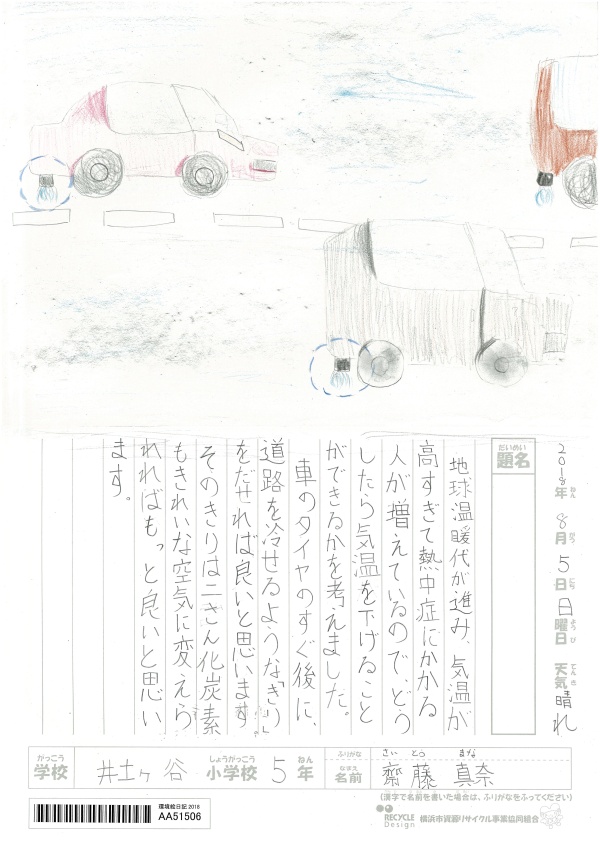 2018年 8月 5日 日曜日 天気 晴れ
ねん がつ にち ようび てんき
だいめい
題名
地球温暖代が進み、気温が
高すぎて熱中症にかかる
人が増えているので、どう
したら気温を下げること
ができるかを考えました。
車のタイヤのすぐ後に、
道路を冷せるような「きり」
をだせれば良いと思います。
そのきりは二さん化炭素
もきれいな空気に変えら
れればもっと良いと思い
ます。
がっこう
学校
井土ヶ谷
しょうがっこう
小学校
5
ねん
年
ふりがな
さい とう まな
なまえ
名前
齋藤 真奈
(漢字で名前を書いた場合は、ふりがなをふってください)
環境絵日記 2018
AA51506
RECYCLE Design
横浜市資源リサイクル事業協同組合